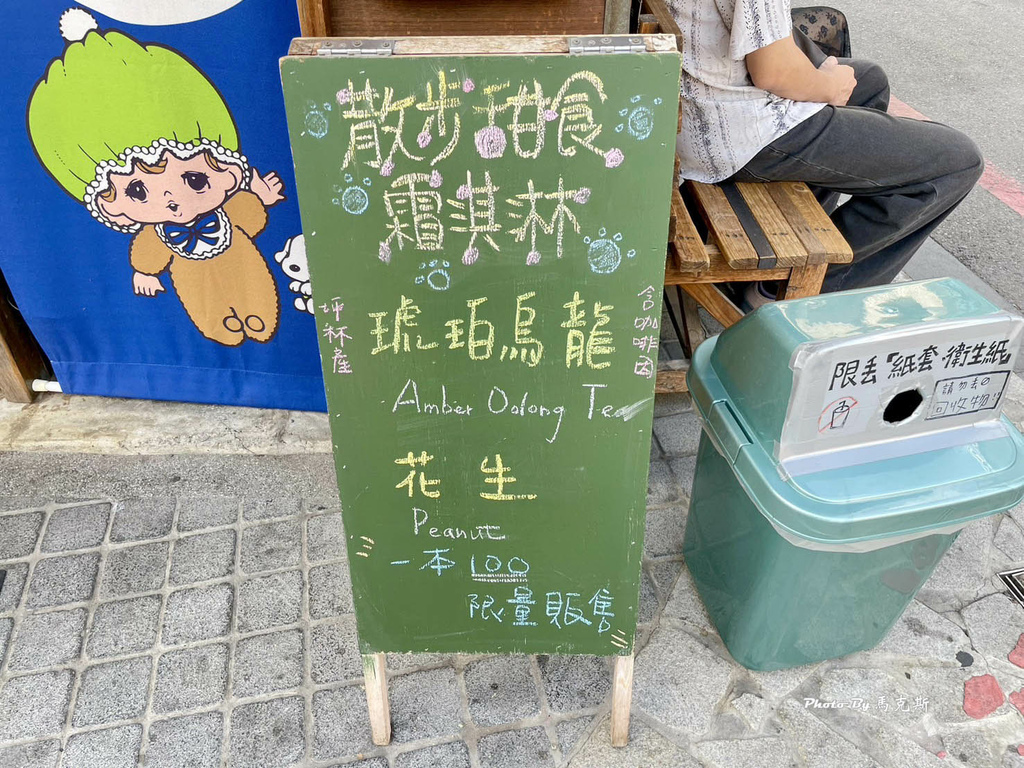 散步甜食
霜淇淋
坪林產
琥珀烏龍
含咖啡因
Amber Oolong Tea
花生
Peanut
一本100
限量販售
限丟「紙套·衛生紙
請勿丟
回收物
Photo By 馬克斯